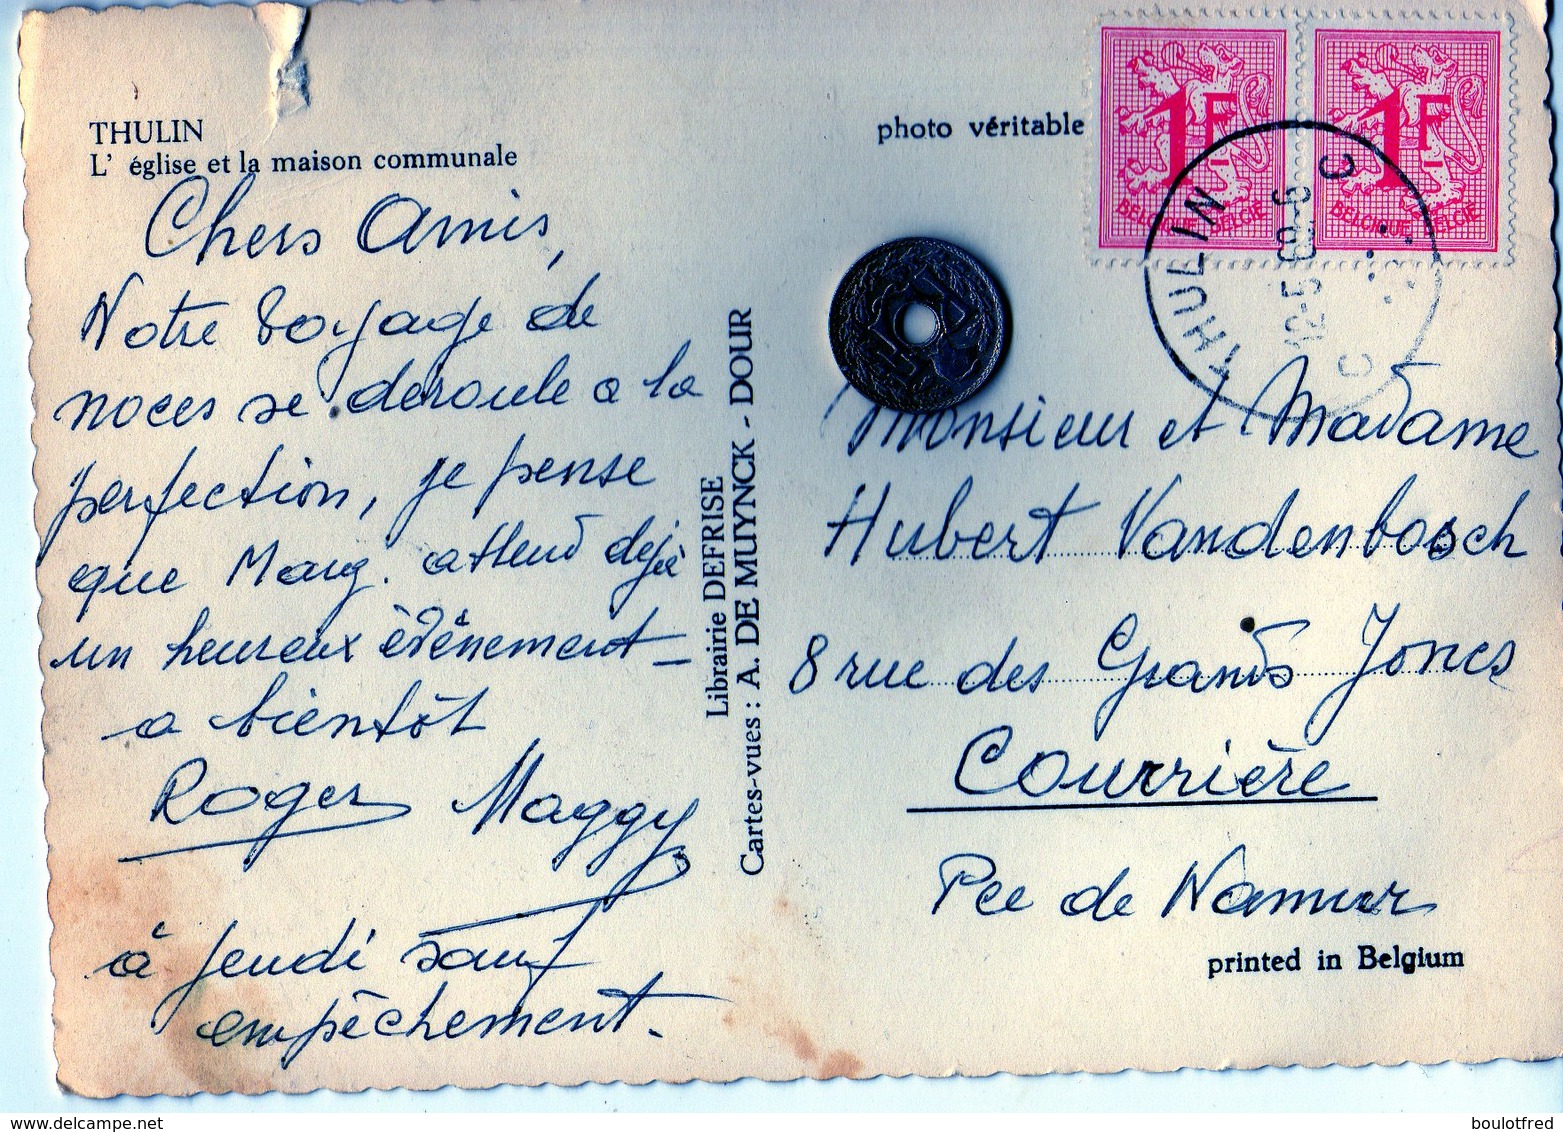 THULIN
L' église et la maison communale
Chers Amis,
Notre voyage de
noces se déroule a la
perfection, je pense
que Marg. attend déjà
un heureux évènement _
a bientôt
Roger Maggy
à jeudi sauf
empêchement.
Librairie DEFRISE
Cartes-vues : A. DE MUYNCK - DOUR
photo véritable
1F
BELGIQUE BELGIË
1F
BELGIQUE BELGIË
THULIN
C
C
Monsieur et Madame
Hubert Vandenbosch
8 rue des Grands Joncs
Courrière
Pce de Namur
printed in Belgium
boulotfred
www.delcampe.net